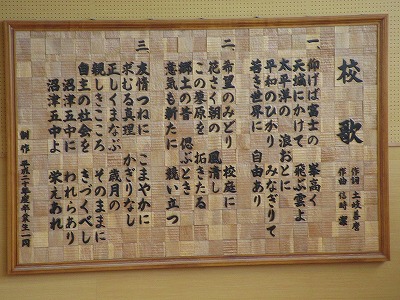 校歌
作詞 土岐善麿
作曲 信時潔
一、
仰げば富士の 峯高く
天城にかけて 飛ぶ雲よ
太平洋の 浪おとに
平和のひかり みなぎりて
若き世界に 自由あり
二、
希望のみどり 校庭に
花さく朝の 風清し
この墓原を 拓きたる
郷土の昔 偲ぶとき
意気も新たに 競い立つ
三、
友情つねに こまやかに
求むる真理 かぎりなし
正しくまなぶ 歳月の
親しきこころ そのままに
自主の社会を きづくべし
沼津五中に われらあり
沼津五中よ 栄えあれ
制作 平成二十年度卒業生一同